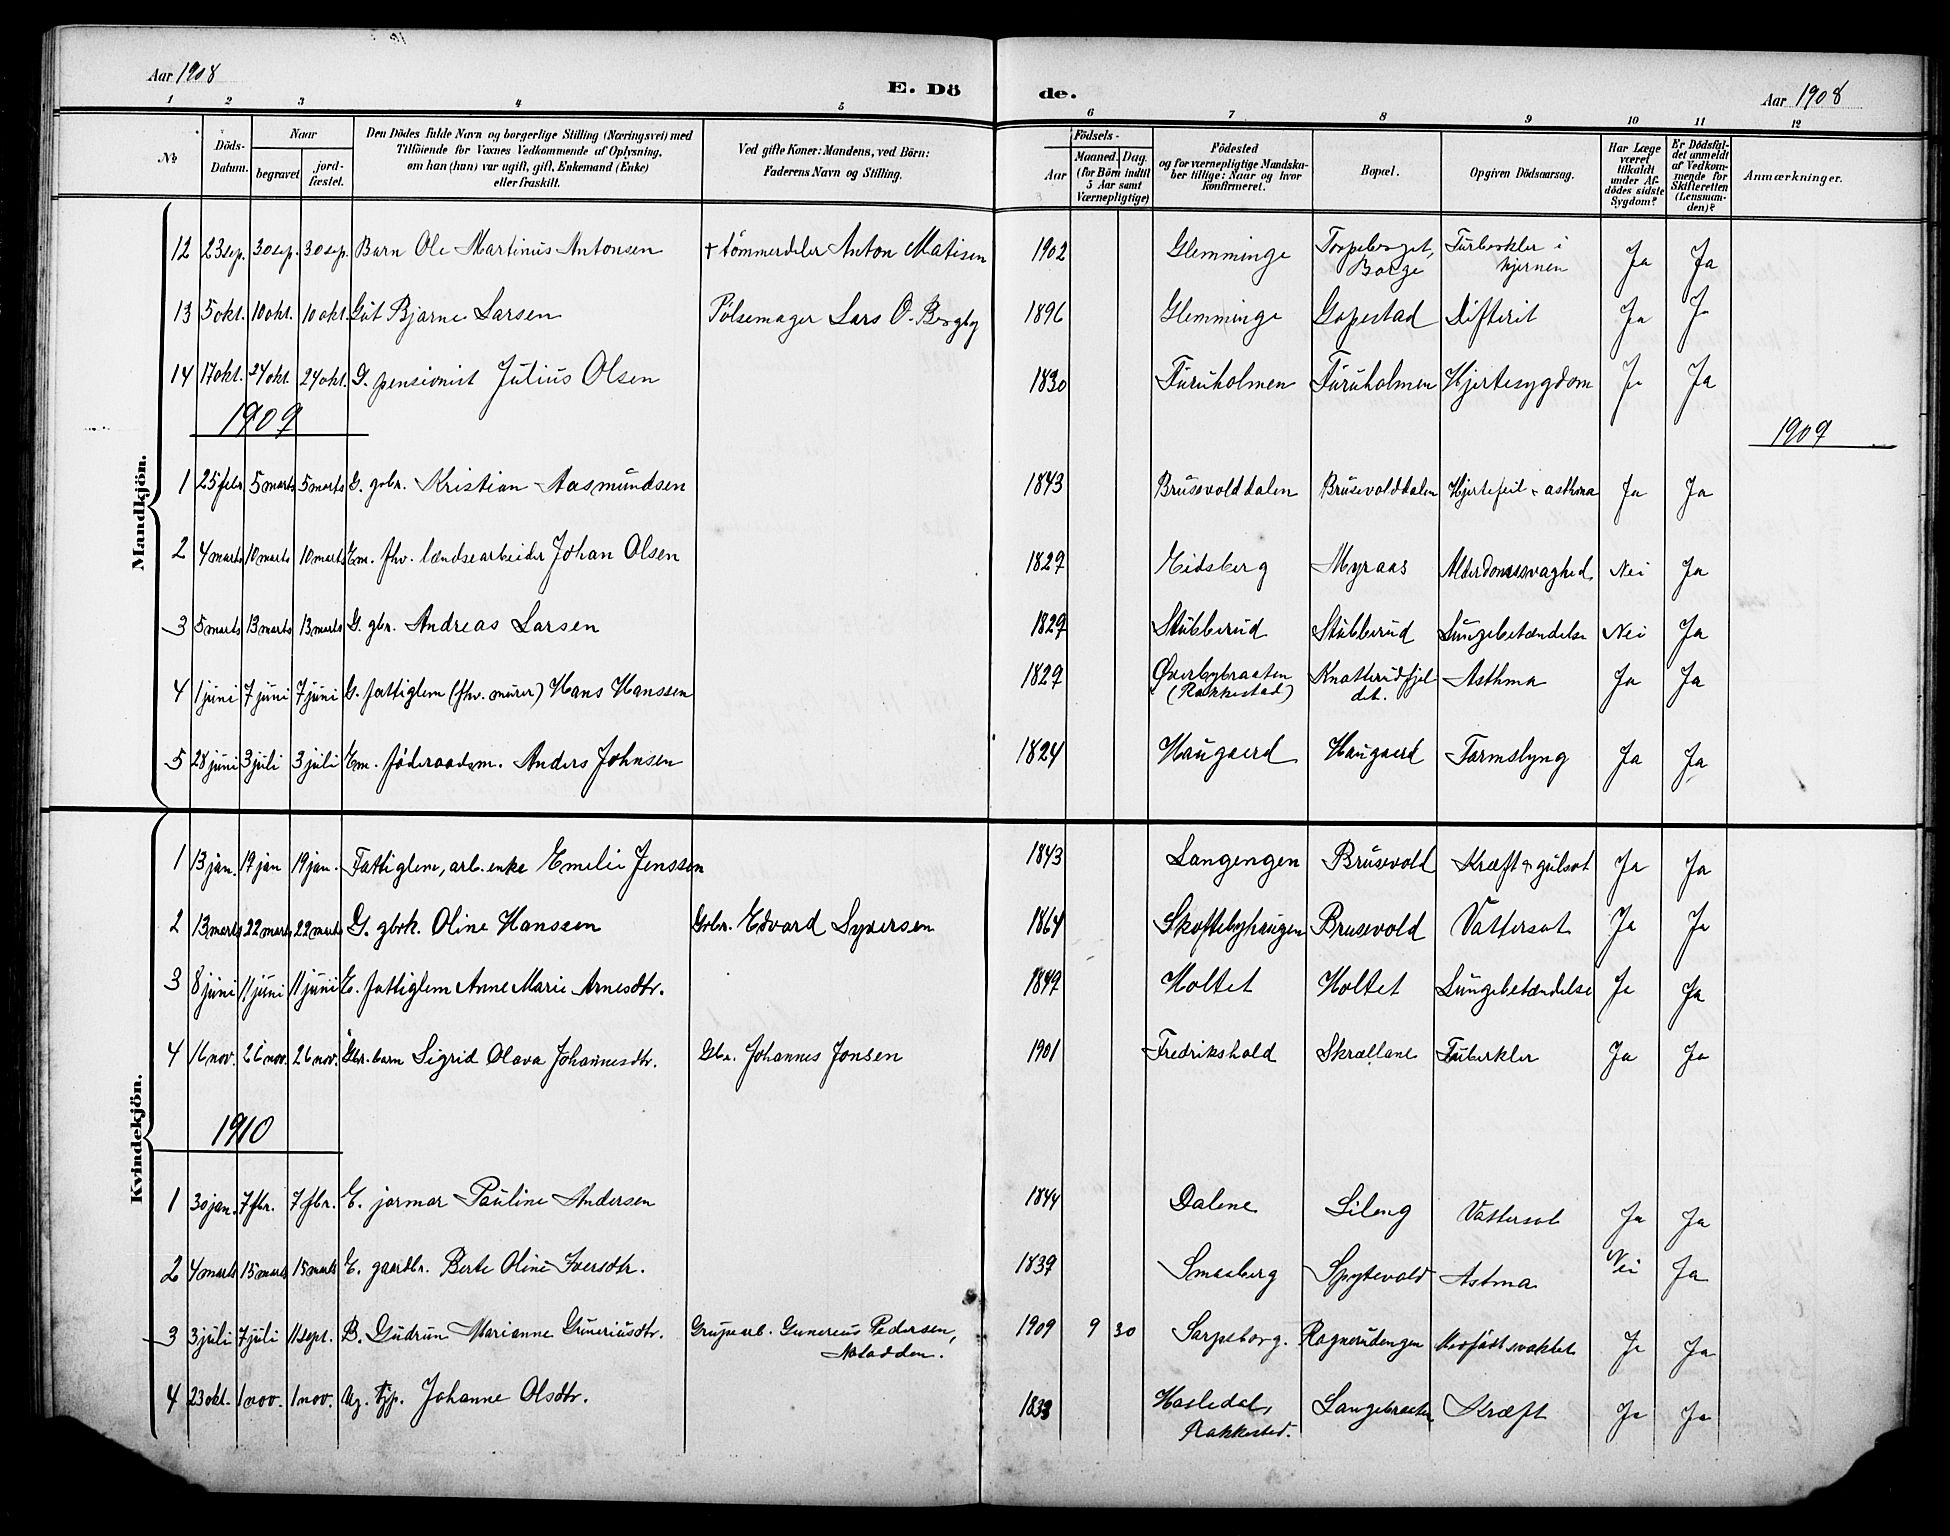 Aar 1908
E. Dö de.
Aar 1908
1 2 3 4 5 6 7 8 9 10 11 12
No
Döds-Datum.
Naar
begravet
jord-fæstet.
Den Dödes fulde Navn og borgerlige Stilling (Næringsvei) med
Tilföiende for Voxnes Vedkommende af Oplysning,
om han (hun) var ugift, gift, Enkemand (Enke)
eller fraskilt.
Ved gifte Koner: Mandens, ved Börn:
Faderens Navn og Stilling.
Födsels-
Aar
Maaned. Dag.
(for Börn indtil
5 Aar samt
Værnepligtige)
Födested
og for værnepligtige Mandska-
ber tillige: Naar og hvor
konfirmeret.
Bopæl.
Opgiven Dödsaarsag.
Har Læge
været
tilkaldt
under Af-
dödes sidste
Sygdom?
Er Dödsfal-
det anmeldt
af Vedkom-
mende for
Skifteretten
(Lensman-
den)?
Anmærkninger.
Mandkjön.
12 23 sep. 30 sep. 30 sep. Barn Ole Martinus Antonsen + tømmerdeler Anton Matisen 1902 Glemminge Torpeberget, Borge Turberkler i hjernen Ja Ja
13 5 okt. 10 okt. 10 okt. Gut Bjarne Larsen Pølsemager Lars O. Bergby 1896 Glemminge Gopestad Difterit Ja J
14 17 okt. 24 okt. 24 okt. G. pensionist Julius Olsen 1830 Furuholmen Furuholmen Hjertesygdom Ja Ja
1909
1909
1 25 febr 5 marts 5 marts G. gbr. Kristian Aasmundsen 1843 Brusevolddalen Brusevolddalen Hjertefeil + asthma Ja Ja
2 4 marts 10 marts 10 marts Em. fhv. lændsearbeider Johan Olsen 1829 Eidsberg Myraas Alderdomssvaghed Nei Ja
3 5 marts 13 marts 13 marts G. gbr. Andreas Larsen 1829 Stubberud Stubberud Lungebetændelse Nei Ja
4 1 juni 7 juni 7 juni G. fattiglem (fhv. murer) Hans Hanssen 1829 Øverbybraaten (Rakkestad) Knatterudfjeldet. Asthma Ja Ja
5 28 juni 3 juli 3 juli Em. føderaadsm. Anders Johnsen 1824 Haugaerd Haugaerd Tarmslyng Ja Ja
Kvindekjön.
1 13 jan. 19 jan 19 jan. Fattiglem, arb. enke Emelie Jenssen 1843 Langengen Brusevold Kræft + gulsot Ja Ja
2 13 marts 22 marts 22 marts G. gbrk. Oline Hanssen Gbr. Edvard Syversen 1864 Skoftebyhaugen Brusevold Vattersot Ja Ja
3 8 juni 11 juni 11 juni E. fattiglem Anne Marie Arnesdtr. 1849 Holtet Holtet Lungebetændelse Ja Ja
4 16 nov. 26 nov. 26 nov. Gbr. barn Sigrid Olava Johannesdtr. Gbr. Johannes Jonsen 1901 Fredrikshald Skrællane Tuberkler Ja Ja
1910
1 30 jan. 7 fbr. 7 fbr. E. jormor Pauline Andersen 1844 Dalene Lileng Vattersot Ja Ja
2 4 marts 15 marts 15 marts E. gaardbr. Berte Oline Iversdtr. 1839 Smaaberg Spytevold Astma Nei Ja
3 3 juli 7 juli 11 sept. B. Gudrun Marianne Guneriusdtr. Grubearb. Gunerius Pedersen, Notodden. 1909 9 30 Sarpsborg. Ragnerudengen Medfødt svakhet Ja Ja
4 23 okt. 1 nov. 1 nov. Ug. tjp. Johanne Olsdtr. 1833 Hasledal, Rakkestad. Langebraaten Kræft Ja Ja